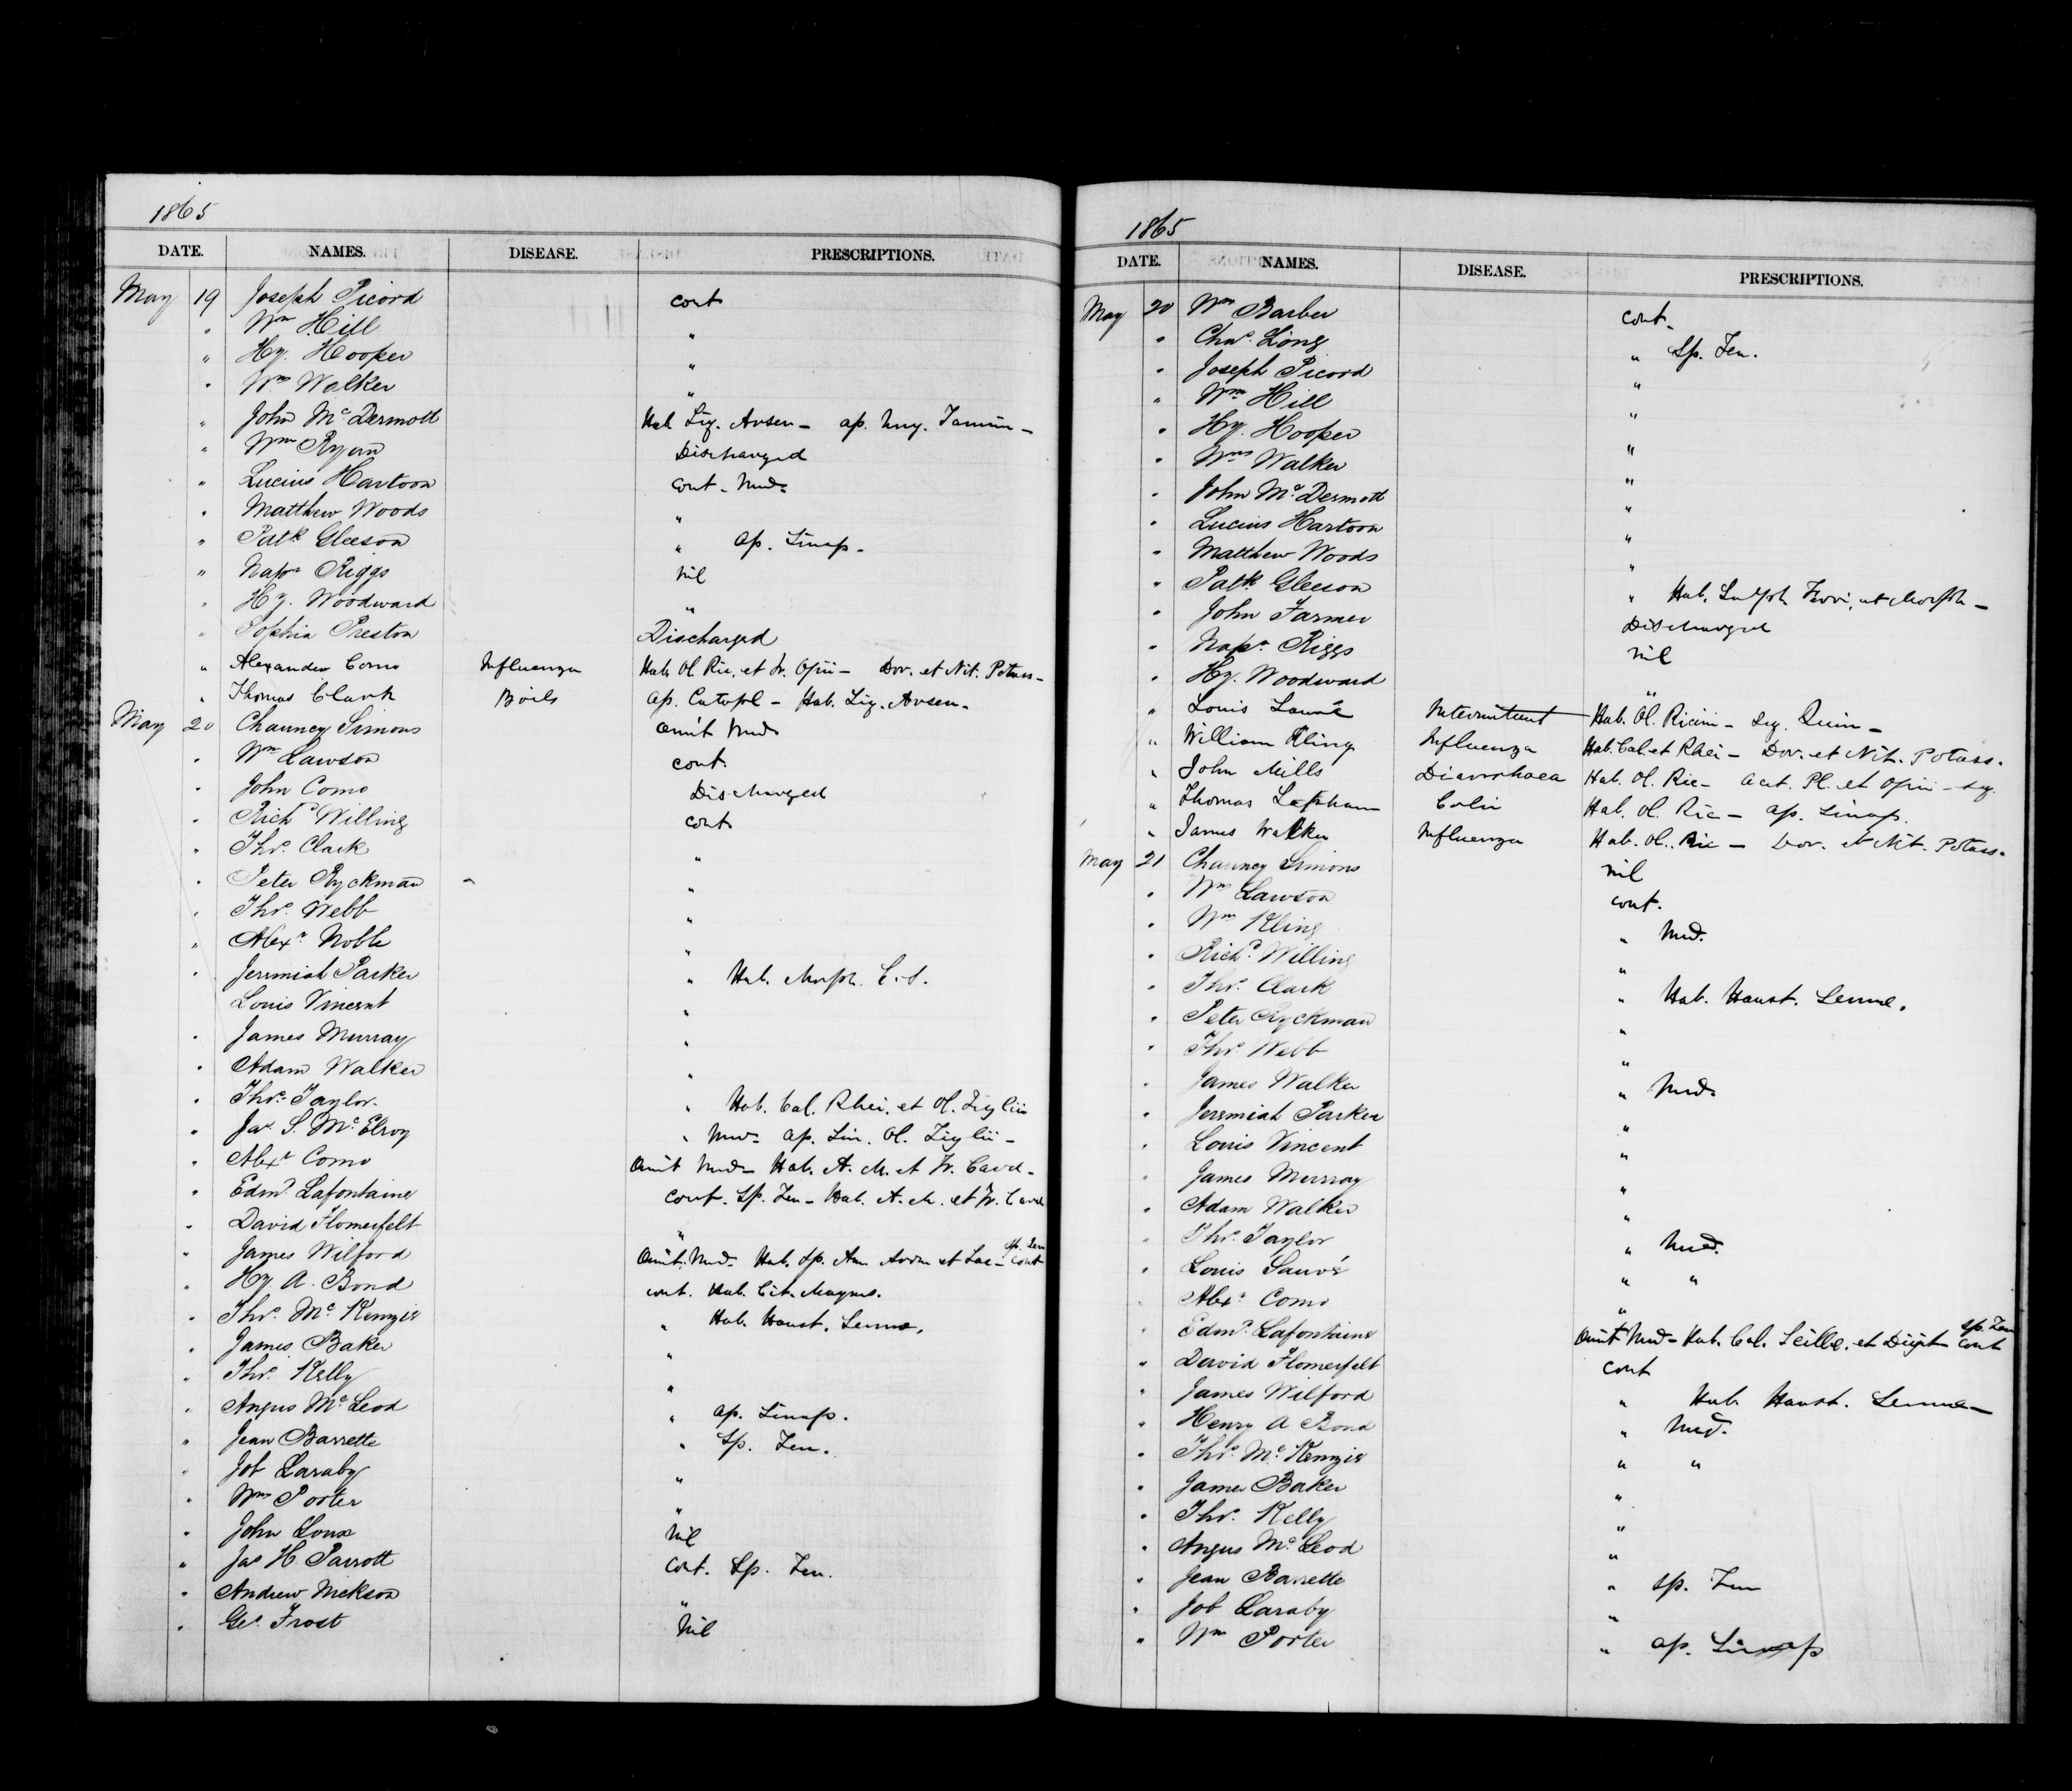 1865
DATE. NAMES. DISEASE. PRESCRIPTIONS.
May 19 Joseph Picord cont
" Wm Hill "
" Hy. Hooper "
" Wm Walker "
" John McDermott Hab Liq. Arsen - ap. Ung. Tannin -
" Wm Ryan Discharged
" Lucius Hartoon cont. Med.
" Matthew Woods "
" Patk Gleeson " ap. Sinap.
" Napn Riggs nil
" Hy. Woodward "
" Sophia Preston Discharged
" Alexander Como Influenza Hab Ol. Ric. et Tr. Opii - Dov. et Nit. Potass -
" Thomas Clark Boils ap. Catapl - Hab. Liq. Arsen -
May 20 Chauncy Simons Omit Med
" Wm Lawson cont.
" John Como Discharged
" Richd Willing cont
" Thos. Clark "
" Peter Ryckman "
" Thos. Webb "
" Alexr Noble "
" Jeremiah Parker " Hab. Morph. C.S.
Louis Vincent "
" James Murray "
" Adam Walker "
" Thos. Taylor. " Hab. Cal. Rhei. et Ol. Tiglii
" Jas. S. McElroy " Med - ap. Lin. Ol. Tiglii -
" Alexr Como Omit Med - Hab. A. M. et Tr. Card -
" Edmd Lafontaine cont. Sp. Fen - Hab. A. M. et Tr. Card
" David Flomerfelt "
" James Wilford Omit. Med - Hab. Sp. Am Arom et Lac - Sp. Fen cont
" Hy. A. Bond cont. Hab. Cit. Magnes.
" Thos. McKenzie " Hab. Haust. Sennae,
" James Baker "
" Thos. Kelly "
" Angus McLeod " ap. Sinap.
" Jean Barrette " Sp. Fen.
" Job Laraby "
" Wm Porter "
" John Loux nil
" Jas H. Parrott cont. Sp. Fen.
" Andrew Nickson "
" Geo. Frost nil
1865
DATE. NAMES. DISEASE. PRESCRIPTIONS.
May 20 Wm Barber cont.
" Chas. Long " Sp. Fen.
" Joseph Picord "
" Wm Hill "
" Hy. Hooper "
" Wm Walker "
" John McDermott "
" Lucius Hartoon "
" Matthew Woods "
" Patk Gleeson " Hab. Sulph Ferri, et Morph -
" John Farmer Discharged
" Napn Riggs nil
" Hy. Woodward "
" Louis Sauvé Intermittent Hab. Ol. Ricini - Liq. Quin -
" William Kling Influenza Hab. Cal. et Rhei - Dov. et Nit. Potass.
" John Mills Diarrhoea Hab. Ol. Ric - Acet. Pl. et Opii -
" Thomas Lapham Colic Hab. Ol. Ric - ap. Sinap.
" James Walker Influenza Hab. Ol. Ric - Dov. et Nit. Potass.
May 21 Chauncy Simons nil
" Wm Lawson cont.
" Wm Kling " Med.
" Richd. Willing "
" Thos. Clark " Hab. Haust. Sennae.
" Peter Ryckman "
" Thos. Webb "
" James Walker " Med
" Jeremiah Parker "
" Louis Vincent "
" James Murray "
" Adam Walker "
" Thos. Taylor " Med.
" Louis Sauvé " "
" Alexr Como "
" Edmd. Lafontaine Omit Med - Hab. Cal. Scillae. et Digit - Sp. Fen cont
" David Flomerfelt cont
" James Wilford " Hab Haust. Sennae -
" Henry A Bond " Med.
" Thos. McKenzie " "
" James Baker "
" Thos. Kelly "
" Angus McLeod "
" Jean Barrette " Sp. Fen
" Job Laraby "
" Wm Porter " ap. Sinap